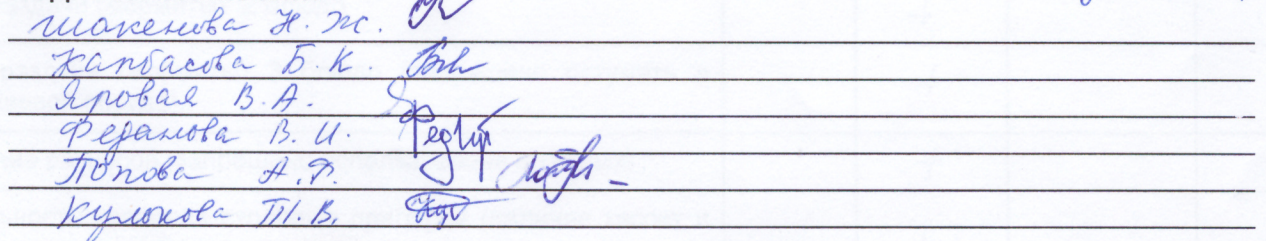 Шакенова Н. Ж.
Капбасова Б. К.
Яровая В. А.
Феданова В. И.
Попова А. Ф.
Кулокова Т. В.